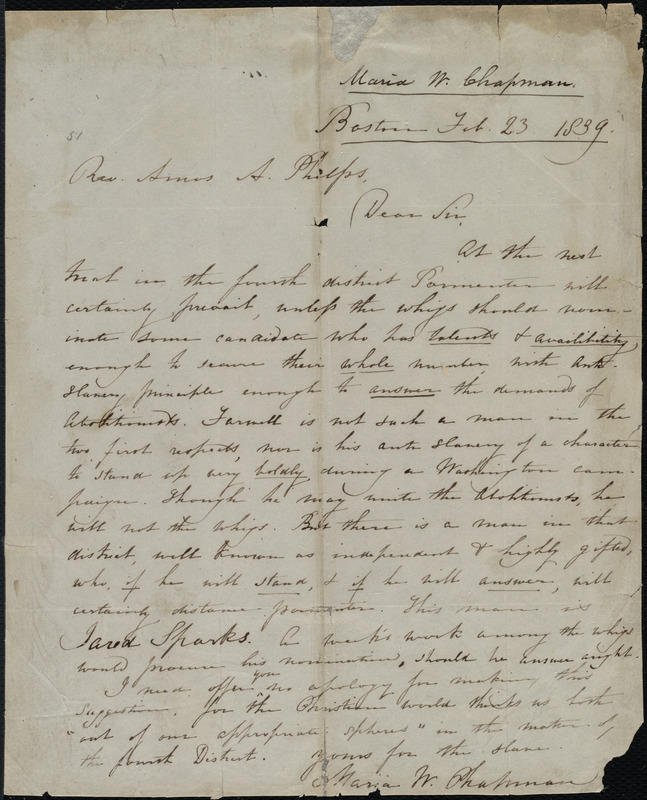 Maria W. Chapman.
Boston Feb. 23 1839.
51
Rev. Amos A. Phelps,
Dear Sir,
At the next
trial in the fourth district Parmenter will
certainly prevail, unless the whigs should nom-
inate some candidate who has talents & availibility,
enough to secure their whole number, with anti-
slavery principle enough to answer the demands of
Abolitionists. Farwell is not such a man in the
two first respects, nor is his anti slavery of a character
to stand up very boldly, during a Washington cam-
paign. Though he may unite the Abolitionists, he
will not the whigs. But there is a man in that
district, well known as independent & highly gifted,
who, if he will stand, & if he will answer, will
certainly distance parmenter. This man is
Jared Sparks. A week's work among the whigs
would procure his nomination, should he answer aright.
I need offer you no apology for making this
suggestion, for the Christian world thinks us both
"out of our appropriate spheres" in the matter of
the fourth District. yours for the slave.
Maria W. Chapman